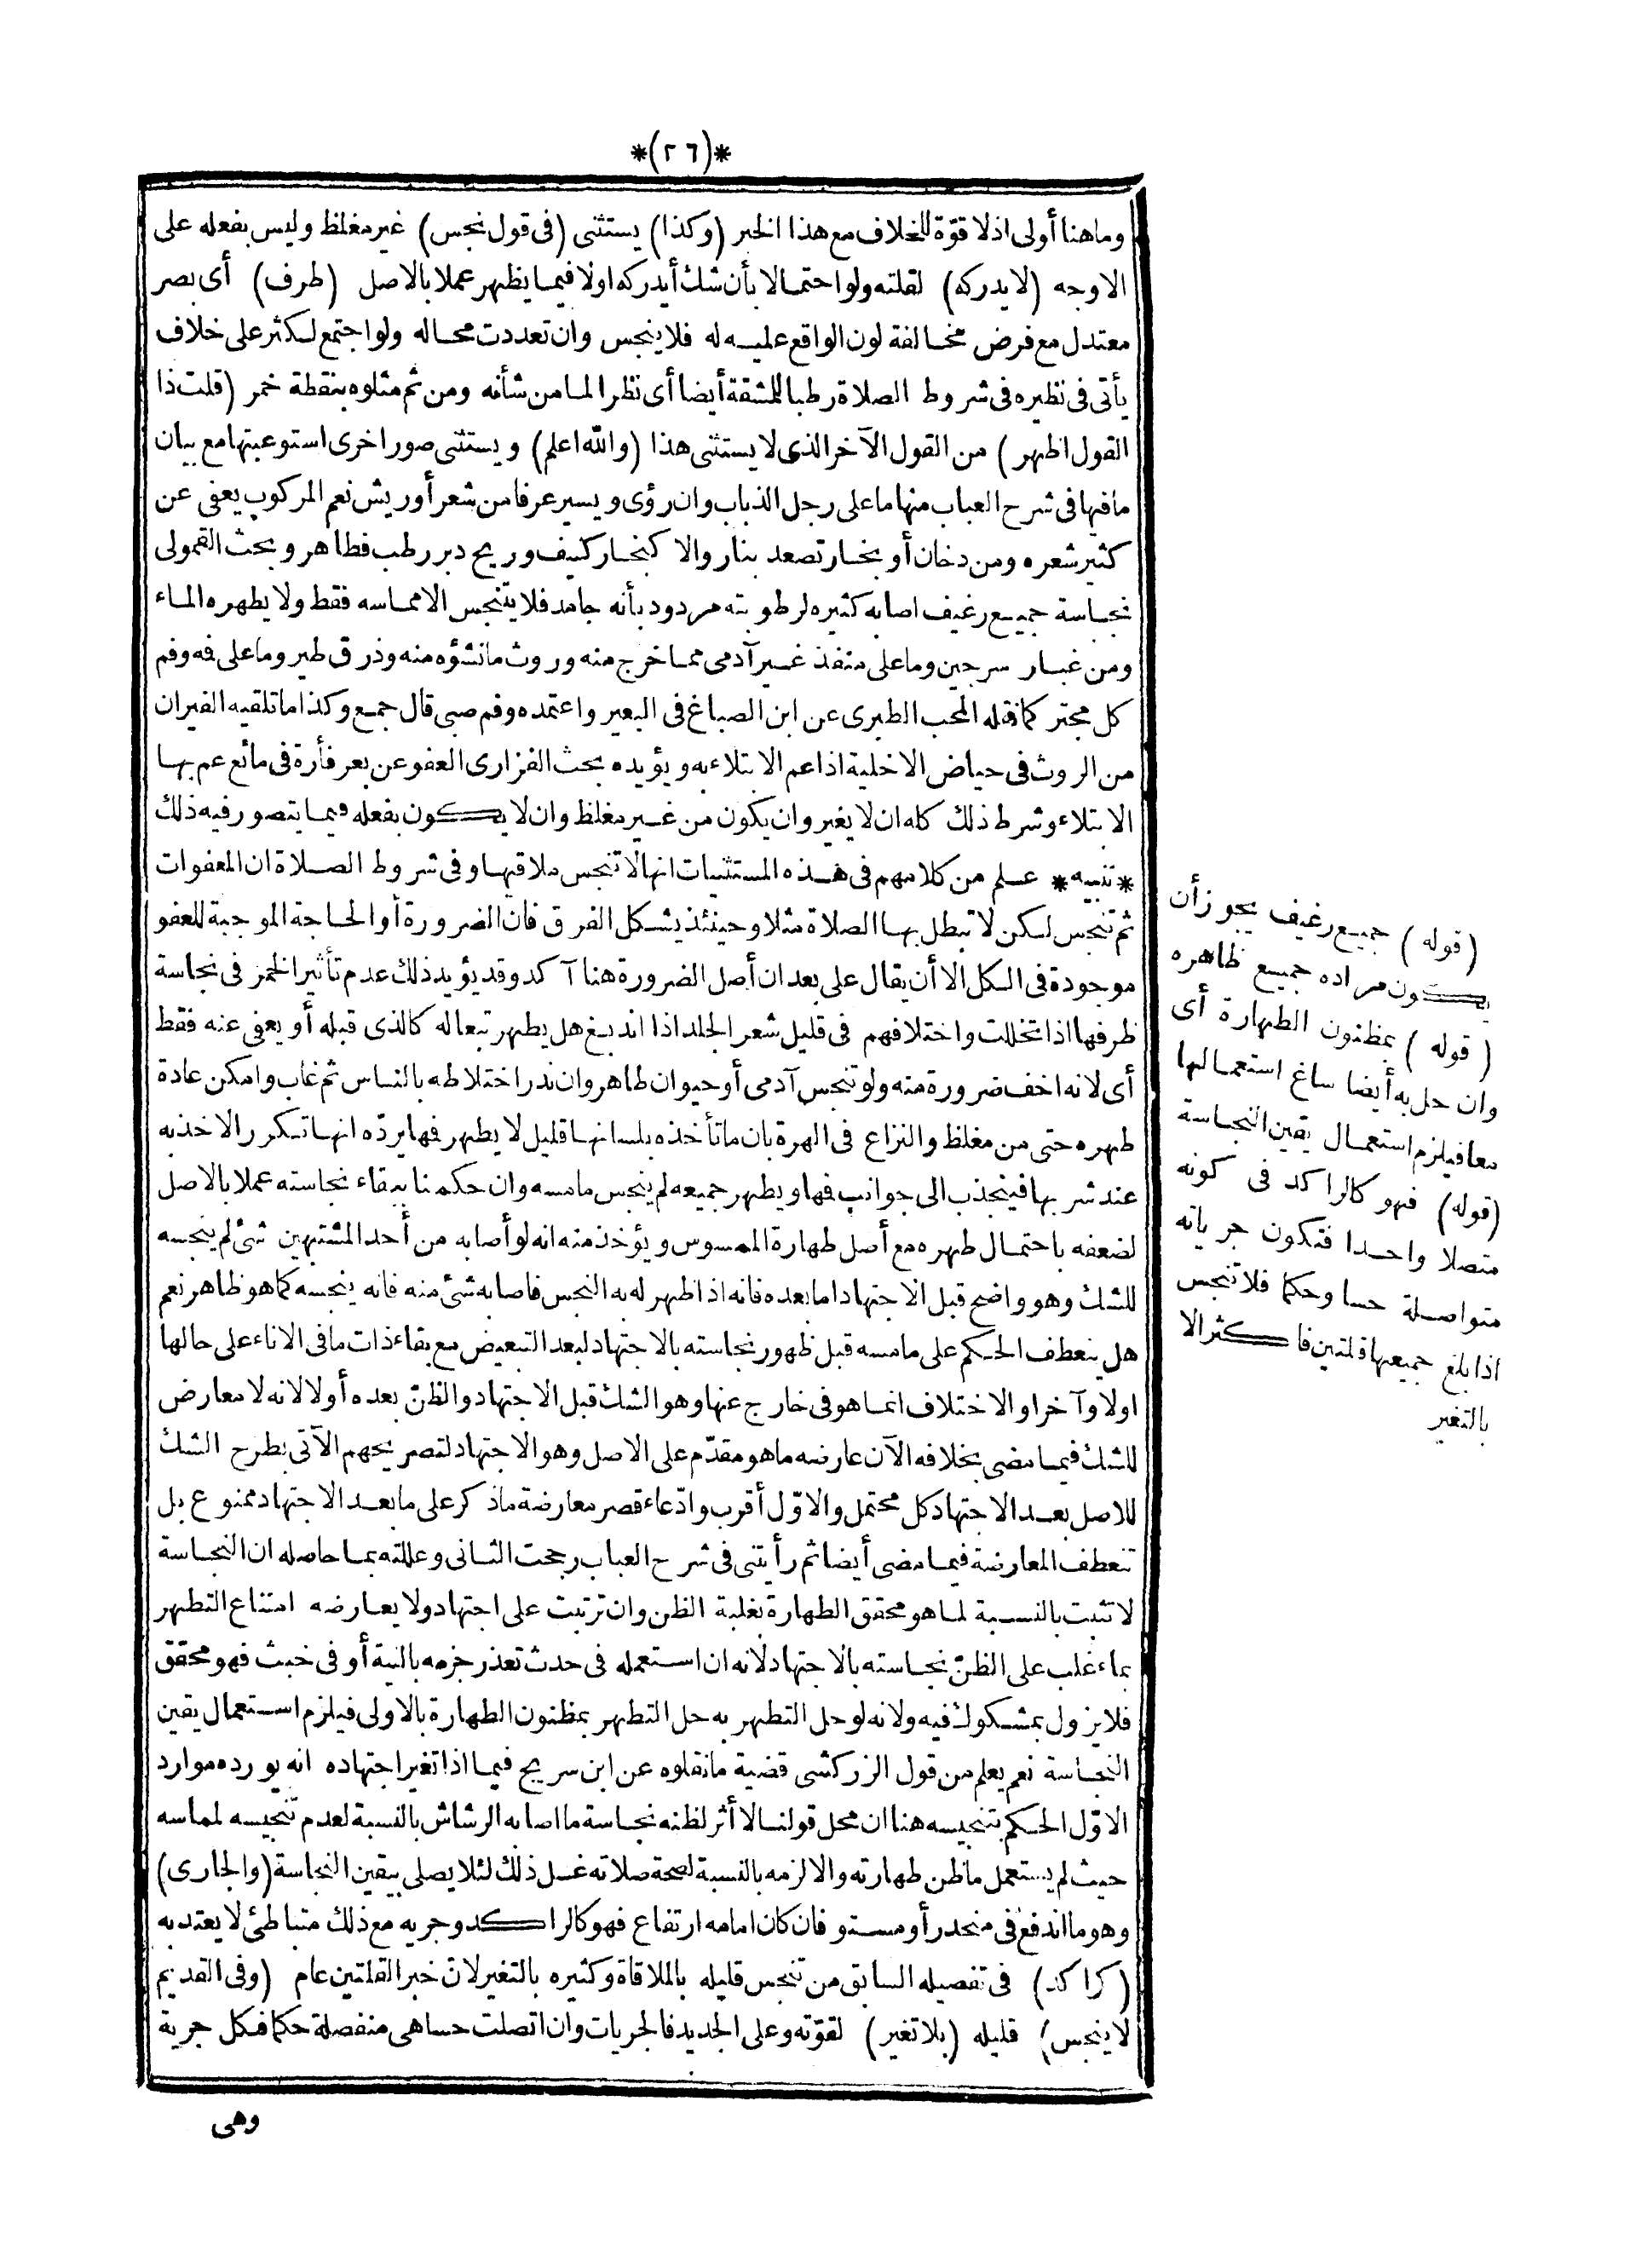 *(٢٦)*
وما هنا أولى اذ لا قوّة للخلاف مع هذا الخبر (وكذا) يستثنى (فى قول نجس) غير مغلظ وليس بفعله على
الاوجه (لا يدركه) لقلته ولو احتمالا بأن شك أيدركه اولا فيما يظهر عملا بالاصل (طرف) أى بصر
معتدل مع فرض مخالفة لون الواقع عليه له فلا ينجس وان تعددت محاله ولو اجتمع لكثر على خلاف
يأتى فى نظيره فى شروط الصلاة رطبا للمشقة أيضا أى نظرا لما من شأنه ومن ثم مثلوه بنقطة خمر (قلت ذا
القول اظهر) من القول الآخر الذى لا يستثنى هذا (والله اعلم) ويستثنى صور اخرى استوعبتها مع بيان
ما فيها فى شرح العباب منها ما على رجل الذباب وان رؤى ويسير عرفا من شعر أو ريش نعم المركوب يعفى عن
كثير شعره ومن دخان أو بخار تصعد بنار والا كبخار كنيف وريح دبر رطب فطاهر وبحث القمولى
نجاسة جميع رغيف اصابه كثيره لرطوبته مردود بأنه جامد فلا يتنجس الا مماسه فقط ولا يطهره الماء
ومن غبار سرجين وما على منفذ غير آدمى مما خرج منه وروث ما نشؤه منه وذرق طير وما على فه وفم
كل مجتر كما نقله المحب الطبرى عن ابن الصباغ فى البعير واعتمده وفم صبى قال جمع وكذا ما تلقيه الفيران
من الروث فى حياض الاخلية اذا عم الابتلاء به ويؤيده بحث الفزارى العفو عن بعر فأرة فى مائع عم بها
الابتلاء وشرط ذلك كله ان لا يغير وان يكون من غير مغلظ وان لا يكون بفعله فيما يتصور فيه ذلك
*تنبيه* علم من كلامهم فى هذه المستثنيات انها لا تنجس ملاقيها وفى شروط الصلاة ان المعفوات
ثم تنجس لكن لا تبطل بها الصلاة مثلا وحينئذ يشكل الفرق فان الضرورة أو الحاجة الموجبة للعفو
موجودة فى الكل الا أن يقال على بعد ان أصل الضرورة هنا آكد وقد يؤيد ذلك عدم تأثير الخمر فى نجاسة
ظرفها اذا تخللت واختلافهم فى قليل شعر الجلد اذا اندبغ هل يطهر تبعا له كالذى قبله أو يعفى عنه فقط
أى لانه اخف ضرورة منه ولو تنجس آدمى أو حيوان طاهر وان ندر اختلاطه بالناس ثم غاب وامكن عادة
طهره حتى من مغلظ والنزاع فى الهرة بان ما تأخذه بلسانها قليل لا يطهر فها يردّه انها تكرر الاخذ به
عند شربها فينجذب الى جوانب فها ويطهر جميعه لم ينجس ما مسه وان حكمنا ببقاء نجاسته عملا بالاصل
لضعفه باحتمال طهره مع أصل طهارة الممسوس ويؤخذ منه انه لو أصابه من أحد المشتبهين شئ لم ينجسه
للشك وهو واضح قبل الاجتهاد اما بعده فانه اذا ظهر له به النجس فاصابه شئ منه فانه ينجسه كما هو ظاهر نعم
هل ينعطف الحكم على ما مسه قبل ظهور نجاسته بالاجتهاد لبعد التبعيض مع بقاء ذات ما فى الاناء على حالها
اولا وآخرا والاختلاف انما هو فى خارج عنها وهو الشك قبل الاجتهاد والظنّ بعده أولا لانه لا معارض
للشك فيما مضى بخلافه الآن عارضه ما هو مقدّم على الاصل وهو الاجتهاد لتصريحهم الآتى بطرح الشك
للاصل بعد الاجتهاد كل محتمل والاوّل أقرب وادّعاء قصر معارضة ما ذكر على ما بعد الاجتهاد ممنوع بل
تنعطف المعارضة فيما مضى أيضا ثم رأيتنى فى شرح العباب رجحت الثانى وعللته بما حاصله ان النجاسة
لا تثبت بالنسبة لما هو محقق الطهارة بغلبة الظن وان ترتبت على اجتهاد ولا يعارضه امتناع التطهر
بماء غلب على الظنّ نجاسته بالاجتهاد لانه ان استعمله فى حدث تعذر جزمه بالنية أو فى خبث فهو محقق
فلا يزول بمشكوك فيه ولانه لو حل التطهر به حل التطهر بمظنون الطهارة بالاولى فيلزم استعمال يقين
النجاسة نعم يعلم من قول الزركشى قضية ما نقلوه عن ابن سريج فيما اذا تغير اجتهاده انه يورده موارد
الاوّل الحكم بتنجيسه هنا ان محل قولنا لا أثر لظنه نجاسة ما اصابه الرشاش بالنسبة لعدم تنجيسه لمماسه
حيث لم يستعمل ما ظن طهارته والا لزمه بالنسبة لصحة صلاته غسل ذلك لئلا يصلى بيقين النجاسة (والجارى)
وهو ما اندفع فى منحدر أو مستو فان كان امامه ارتفاع فهو كالراكد وجريه مع ذلك متباطئ لا يعتد به
(كراكد) فى تفصيله السابق من تنجس قليله بالملاقاة وكثيره بالتغير لانّ خبر القلتين عام (وفى القديم
لا ينجس) قليله (بلا تغير) لقوّته وعلى الجديد فالجريات وان اتصلت حسا هى منفصلة حكما فكل جرية
وهى
(قوله) جميع رغيف يجوز أن
يكون مراده جميع ظاهره
(قوله) بمظنون الطهارة أى
وان حل به أيضا ساغ استعمالها
معا فيلزم استعمال يقين النجاسة
(قوله) فهو كالراكد فى كونه
متصلا واحدا فتكون جرياته
متواصلة حسا وحكما فلا تنجس
اذا بلغ جميعها قلتين فاكثر الا
بالتغير